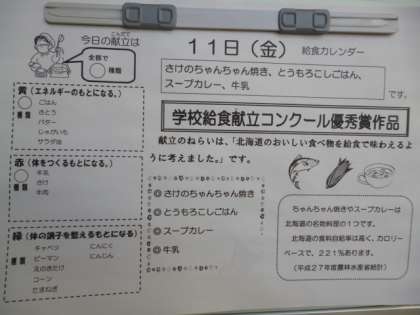 今日の献立は
こんだて
全部で
種類
11日（金）
給食カレンダー
さけのちゃんちゃん焼き、とうもろこしごはん、
スープカレー、牛乳
です。
学校給食献立コンクール優秀賞作品
献立のねらいは、「北海道のおいしい食べ物を給食で味わえるよ
うに考えました。」です。
黄（エネルギーのもとになる。）
種類
ごはん
さとう
バター
じゃがいも
サラダ油
赤（体をつくるもとになる。）
種類
牛乳
さけ
牛肉
緑（体の調子を整えるもとになる）
種類
キャベツ
にんにく
ピーマン
にんじん
えのきたけ
コーン
たまねぎ
◎さけのちゃんちゃん焼き
◎とうもろこしごはん
◎スープカレー
◎牛乳
ちゃんちゃん焼きやスープカレーは
北海道の名物料理の1つです。
北海道の食料自給率は高く、カロリー
ベースで、221％あります。
（平成27年度農林水産省統計）